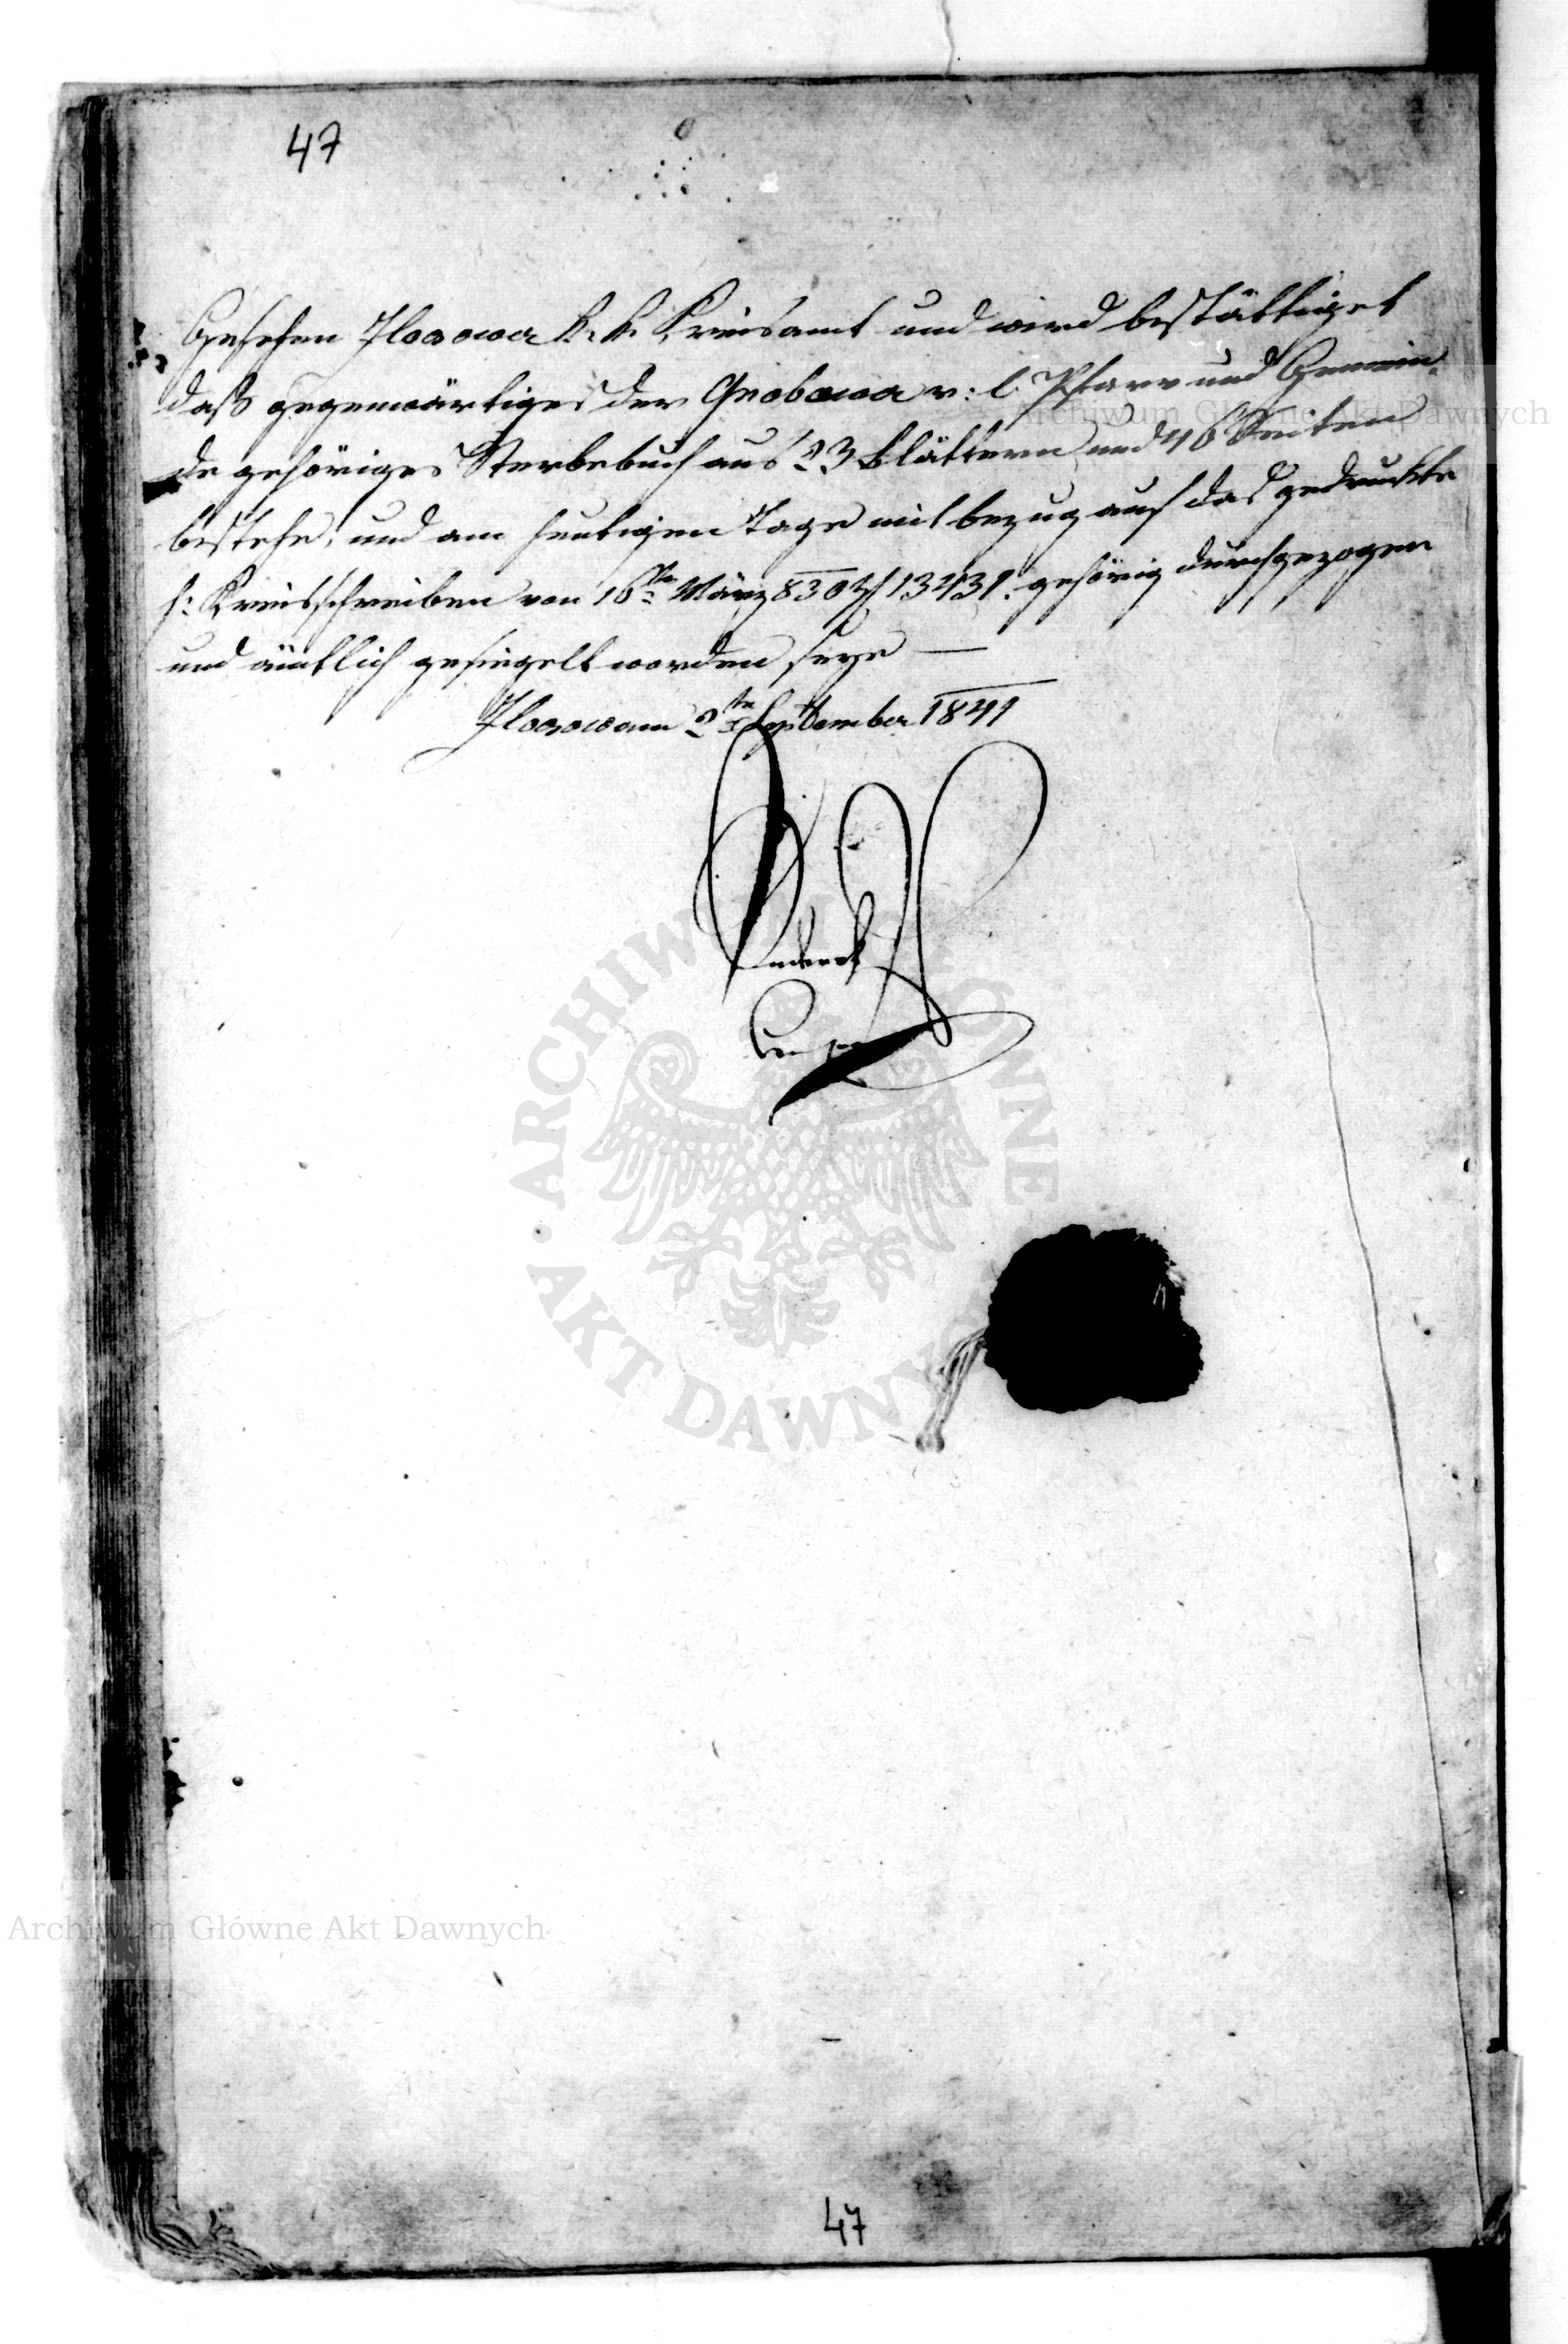 47
Gesehen Złoczower k. k. Kreisamt und wird bestättiget
daß gegenwärtiges der Grabowa r: l. Pfarr und Gemein-
de gehöriges Sterbebuch aus 23 Blättern und 46 Seiten
bestehe, und am heutigen Tage mit bezug auf das gedruckte
h: Kreisschreiben von 16ten März 830 Zl 13431. gehörig durchgezogen
und ämtlich gesiegelt worden seye —
am 2ten September 1841
ARCHIWUM GŁÓWNE
AKT DAWNYCH
Archiwum Główne Akt Dawnych
Archiwum Główne Akt Dawnych
47